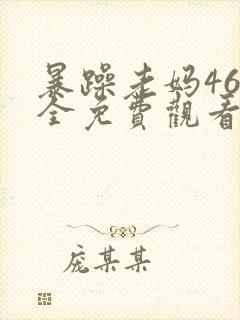 暴躁老妈46
全免費觀看
庞某某